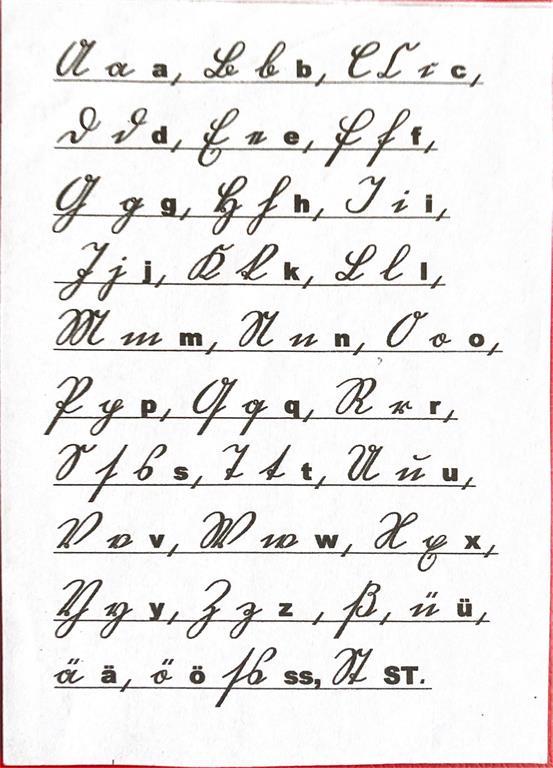 A a a, B b b, C C c c,
D d d, E e e, F f f,
G g g, H h h, I i i,
J j j, K k k, L l l,
M m m, N n n, O o o,
P p p, Q q q, R r r,
S ſ s s, T t t, U u u,
V v v, W w w, X x x,
Y y y, Z z z, ß, ü ü,
ä ä, ö ö ſs ss, St ST.